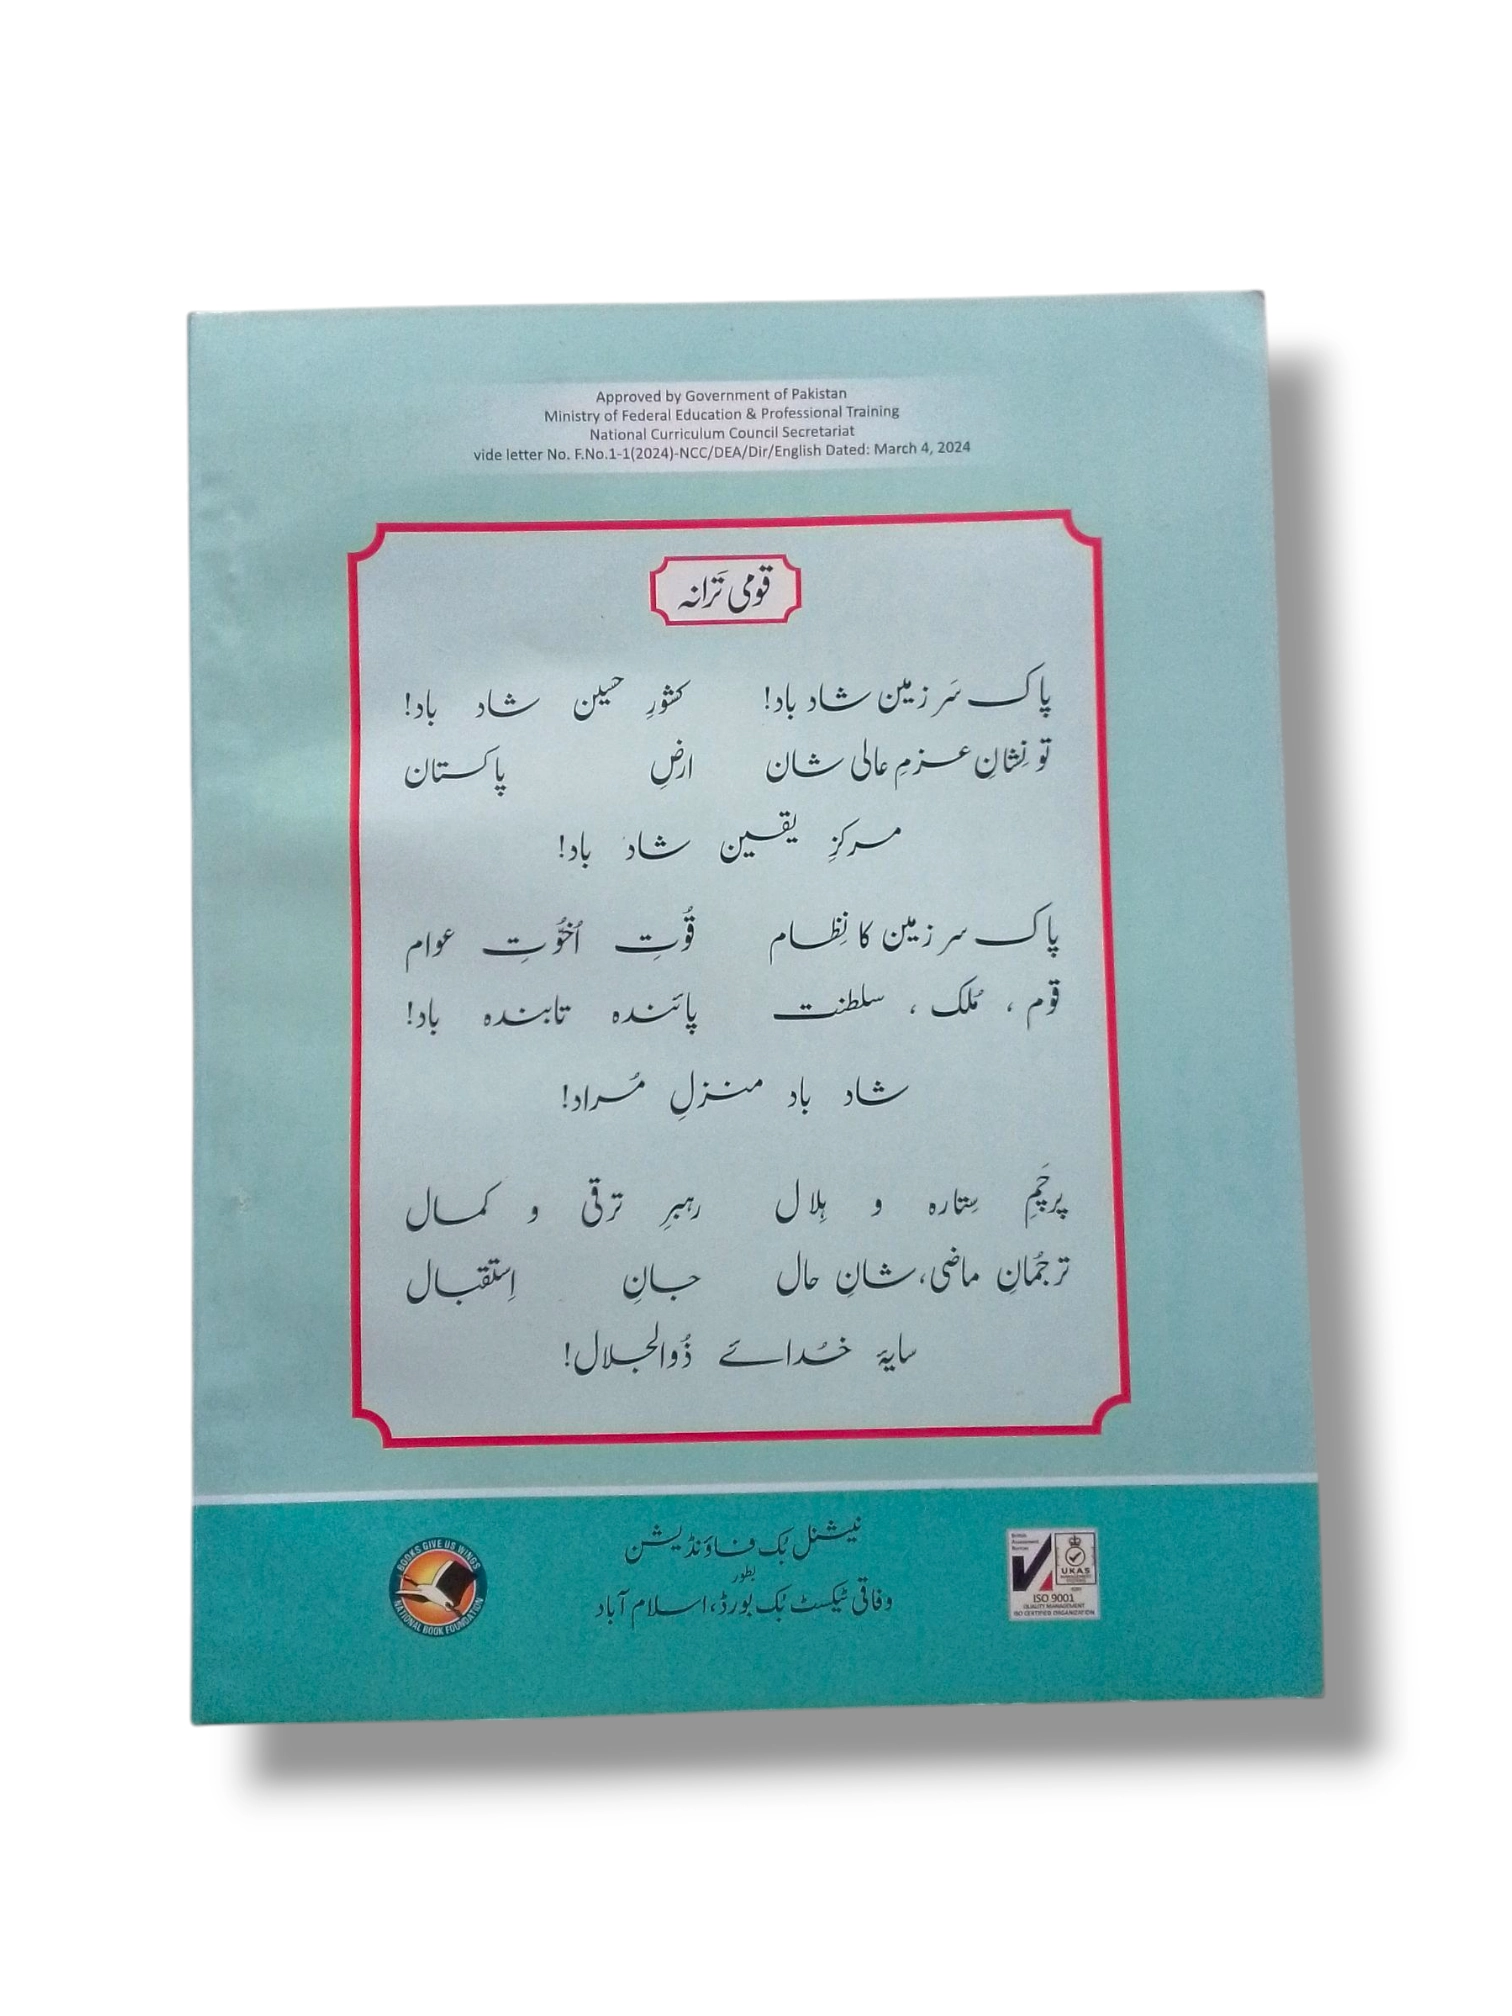 Approved by Government of Pakistan
Ministry of Federal Education & Professional Training
National Curriculum Council Secretariat
vide letter No. F.No.1-1(2024)-NCC/DEA/Dir/English Dated: March 4, 2024
قومی تَرانہ
پاک سَر زمین شاد باد! کشورِ حسین شاد باد!
تو نِشانِ عزمِ عالی شان ارضِ پاکستان
مرکزِ یقین شاد باد!
پاک سر زمین کا نِظام قُوتِ اُخُوّتِ عوام
قوم ، مُلک ، سلطنت پائندہ تابندہ باد!
شاد باد منزلِ مُراد!
پرچَمِ سِتارہ و ہِلال رہبرِ ترقی و کمال
ترجُمانِ ماضی، شانِ حال جانِ اِستقبال
سایۂ خُدائے ذُوالجلال!
نیشنل بُک فاؤنڈیشن
بطور
وفاقی ٹیکسٹ بُک بورڈ، اسلام آباد
BOOKS GIVE US WINGS
NATIONAL BOOK FOUNDATION
UKAS
MANAGEMENT SYSTEMS
ISO 9001
QUALITY MANAGEMENT
ISO CERTIFIED ORGANIZATION